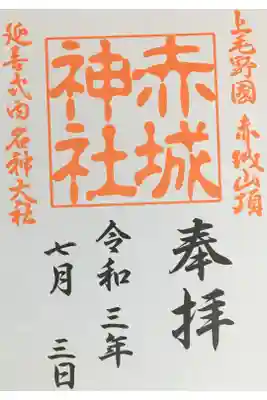 上毛野國 赤城山頂
赤城
神社
延喜式内名神大社
奉拝
令和三年
七月 三日